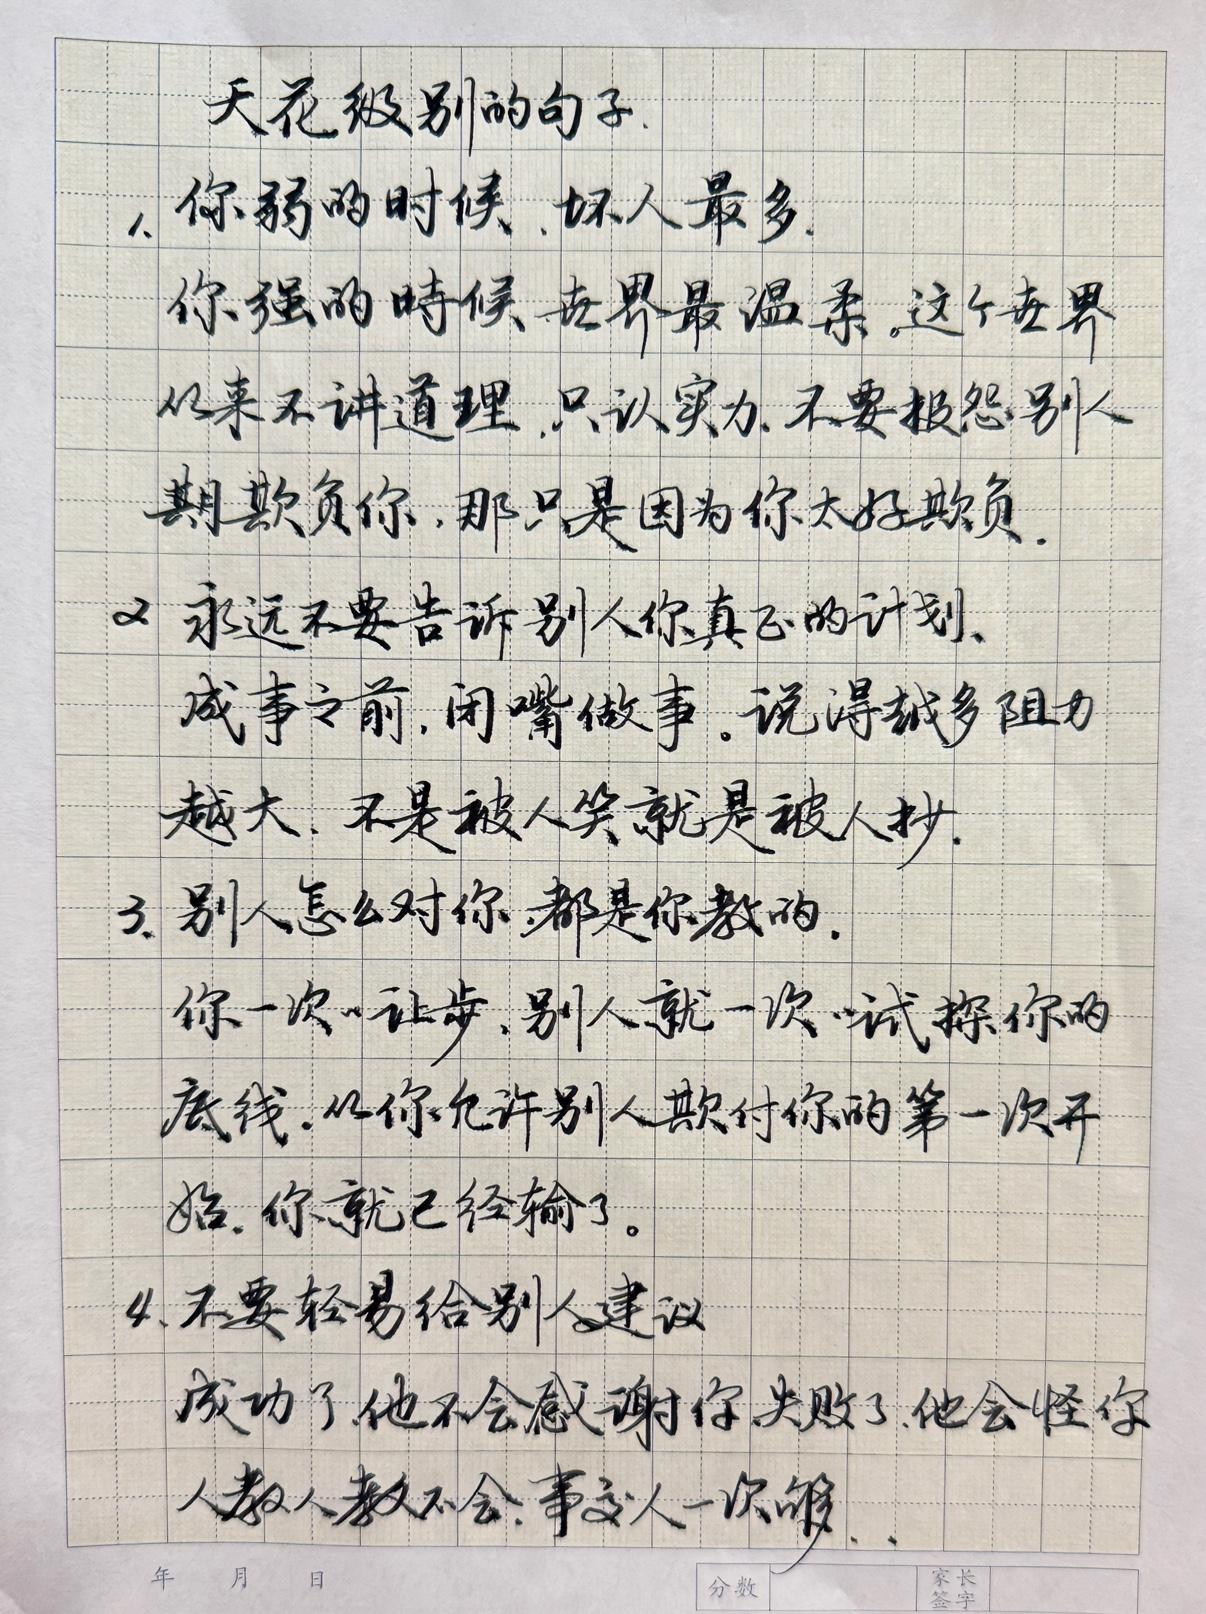 天花级别的句子.
1、你弱的时候、坏人最多.
你强的時候、世界最温柔。这个世界
从来不讲道理、只认实力、不要报怨别人
期欺负你、那只是因为你太好欺负.
2 永远不要告诉别人你真正的计划、
成事之前,闭嘴做事。说得越多阻力
越大、不是被人笑就是被人抄.
3、别人怎么对你、都是你教的.
你一次〃让步、别人就一次〃试探你的
底线.从你允许别人欺付你的第一次开
始.你就已经输了。
4、不要轻易给别人建议
成功了、他不会感谢你、失败了、他会怪你
人教人教不会、事交人一次够...
年 月 日
分数 家长签字